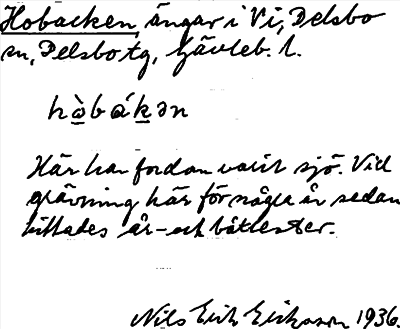 Hobacken, ängar i Vi, Delsbo
sn, Delsbo tg, Gävleb. l.
hòbákən
Här har fordom varit sjö. Vid
grävning här för några år sedan
hittades år- och båtrester.
Nils Erik Eriksson 1936.